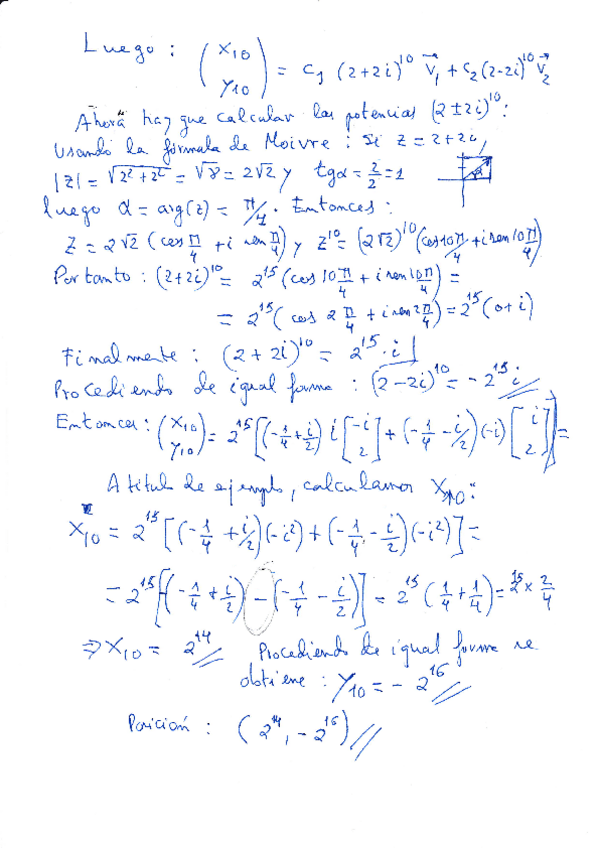 Luego : (x10 y10) = c1 (2+2i)^10 v⃗1 + c2 (2-2i)^10 v⃗2
Ahora hay que calcular las potencias (2 ± 2i)^10 :
Usando la fórmula de Moivre : si z = 2+2i,
|z| = √(2²+2²) = √8 = 2√2 y tg α = 2/2 = 1
luego α = arg(z) = π/4 . Entonces :
z = 2√2 (cos π/4 + i sen π/4) y z^10 = (2√2)^10 (cos 10π/4 + i sen 10π/4)
Por tanto : (2+2i)^10 = 2^15 (cos 10π/4 + i sen 10π/4) =
= 2^15 ( cos 2π/4 + i sen 2π/4) = 2^15 (0+i)
Finalmente : (2+2i)^10 = 2^15 · i
Procediendo de igual forma : (2-2i)^10 = - 2^15 i
Entonces : (x10 y10) = 2^15 [(-1/4 + i/2) i [-i 2] + (-1/4 - i/2)(-i) [i 2]] =
A titulo de ejemplo, calculamos x10 :
x10 = 2^15 [(-1/4 + i/2)(-i²) + (-1/4 - i/2)(-i²)] =
= 2^15 [(-1/4 + i/2) - (-1/4 - i/2)] = 2^15 (1/4 + 1/4) = 2^15 × 2/4
⇒ x10 = 2^14 Procediendo de igual forma se
obtiene : y10 = - 2^16
Posición : (2^14, -2^16)